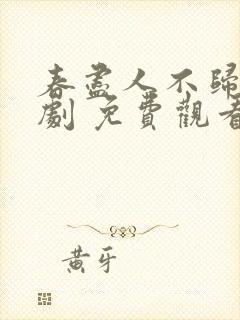 春盡人不歸
劇 免費觀看
黃牙